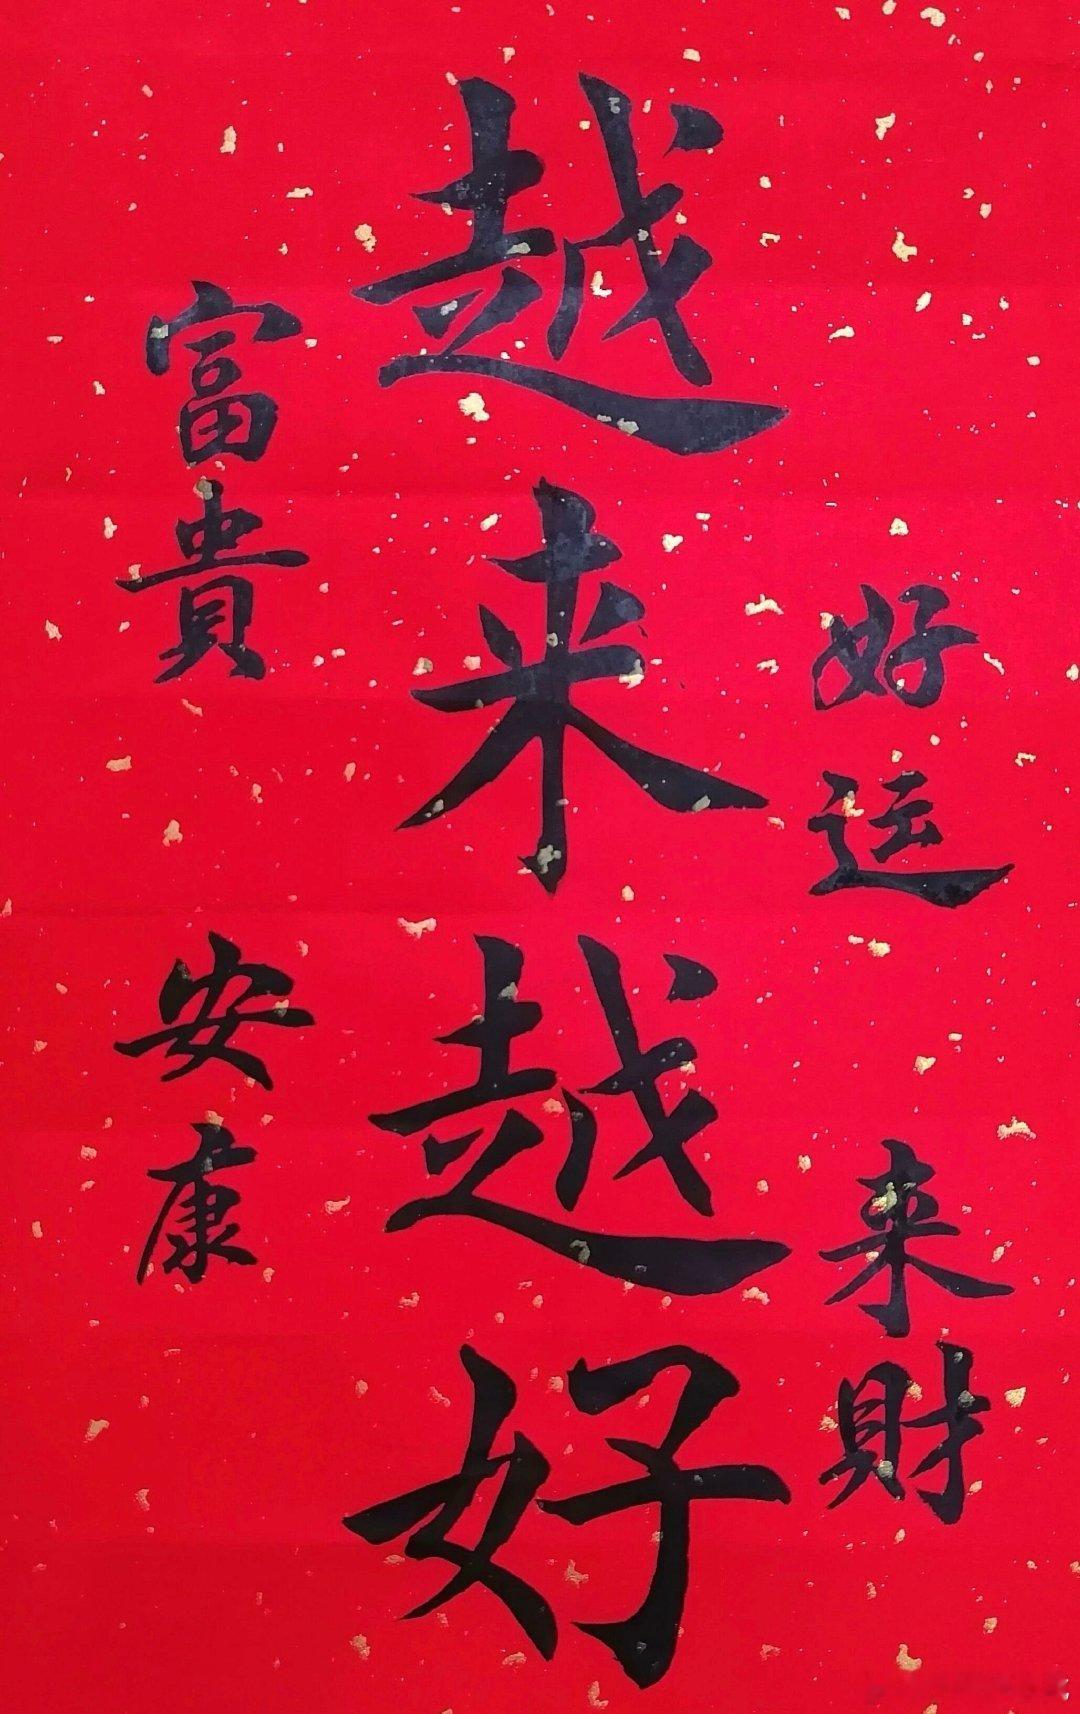 好运来财
越来越好
富貴安康